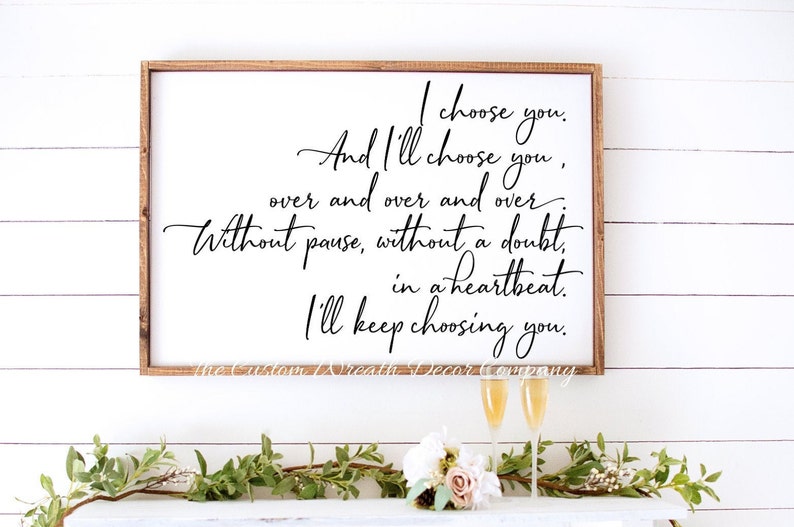 I choose you.
And I'll choose you ,
over and over and over .
Without pause, without a doubt,
in a heartbeat.
I'll keep choosing you.
The Custom Wreath Decor Company